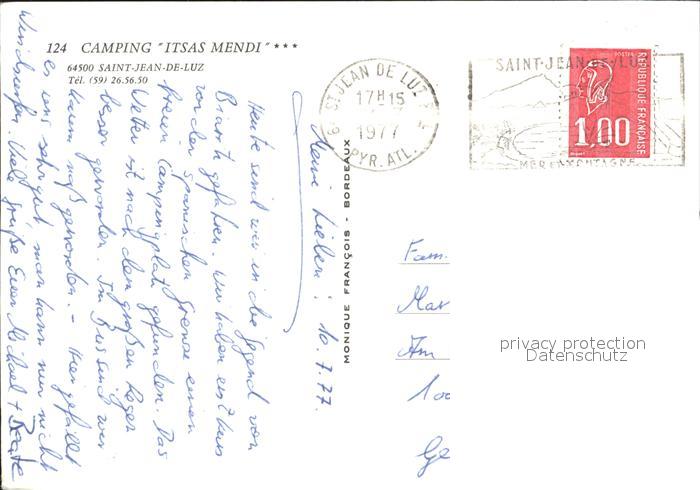 124 CAMPING "ITSAS MENDI" ★★★
64500 SAINT-JEAN-DE-LUZ
Tél. (59) 26.56.50
ST JEAN DE LUZ
17H15
1977
PYR. ATL.
SAINT-JEAN-DE-LUZ
MER ET MONTAGNE
POSTES
REPUBLIQUE FRANÇAISE
1,00
MONIQUE FRANÇOIS - BORDEAUX
Meine Lieben! 10.7.77.
Heute sind wir in die Gegend von
gefahren. Wir haben
vor der spanischen Grenze einen
freien Campingplatz gefunden. Das
Wetter ist nach dem großen Regen
besser geworden. Im Bus sind wir
kaum naß geworden. - Hier gefällt
es uns sehr gut, man kann nur nicht
Windsurfen. Viele Grüße Euer Michael + Beate
Fam.
Mar
Am
100
Ge
privacy protection
Datenschutz